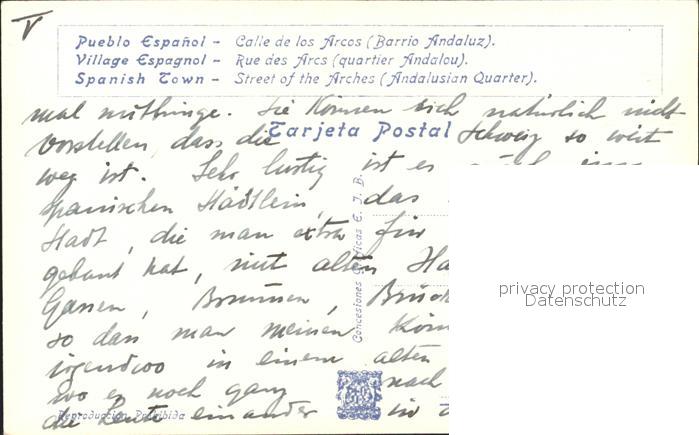 V
Pueblo Español – Calle de los Arcos (Barrio Andaluz).
Village Espagnol – Rue des Arcs (quartier Andalou).
Spanish Town – Street of the Arches (Andalusian Quarter).
mal mitbringe. Sie können sich natürlich nicht
vorstellen, dass die Schweiz so weit
Tarjeta Postal
weg ist. Sehr lustig ist es
spanischen Städtlein, das
Stadt, die man extra für
gebaut hat, mit alten Hä
Gassen, Brunnen, Brück
so dass man meinen kön
irgendwo in einem alten
wo es noch ganz nach
die Leute einander in
Concesiones Gráficas E. I. B.
Reproducción Prohibida
privacy protection
Datenschutz